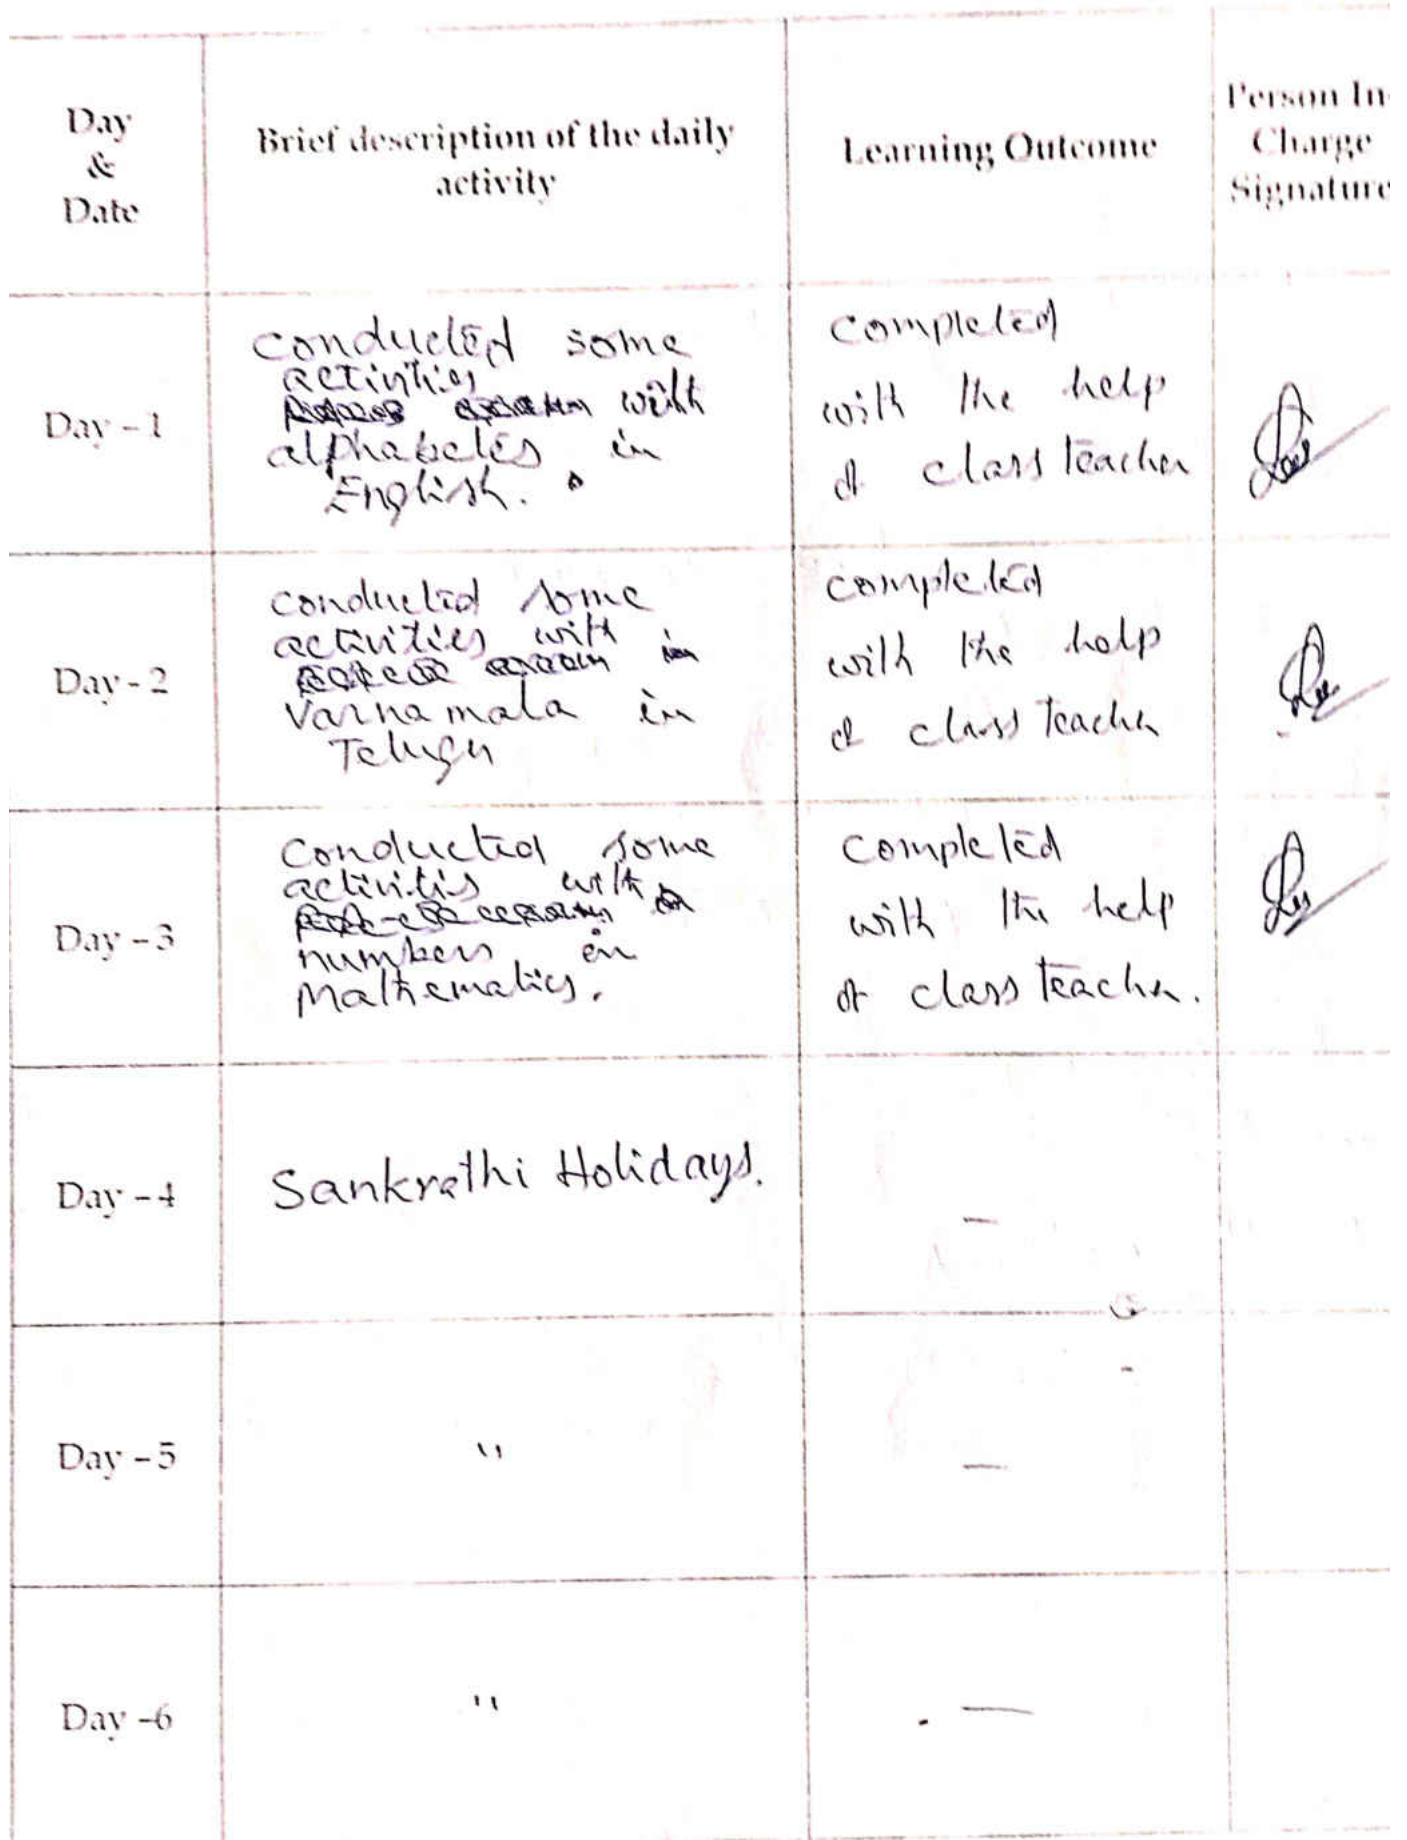 Day
&
Date
Brief description of the daily
activity
Learning Outcome
Person In-
Charge
Signature
Day - 1
conducted some
activities
with
alphabetes in
English.
completed
with the help
of class teacher
Day - 2
conducted some
activities with
in
Varnamala in
Telugu
completed
with the help
of class teacher
Day - 3
conducted some
activitis with
numbers in
Mathematics.
completed
with the help
of class teacher.
Day - 4
Sankrathi Holidays.
-
Day - 5
"
-
Day -6
"
-